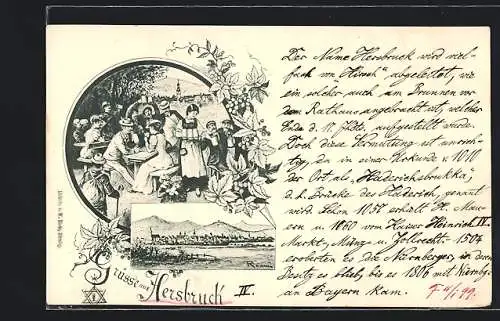 Der Name Hersbruck wird viel-
fach von „Hirsch“ abgeleitet, wie
ein solcher auch am Brunnen vor
dem Rathaus angebracht ist, welcher
Ende d. 17. aufgestellt wurde.
Doch diese Vermutung ist unrich-
tig, da in einer Urkunde v. 1010
der Ort als „Haderichsbrukka“
d. h. Brücke des Haderich, genannt
wird. Schon 1057 erhält H.
u. 1060 von Kaiser Heinrich IV.
Markt-, Münz- u. Zollrecht. 1504
eroberten es die Nürnberger, in deren
Besitz es blieb, bis es 1806 mit Nürnbg.
an Bayern kam.
99.
Grüsse aus
Hersbruck IV.